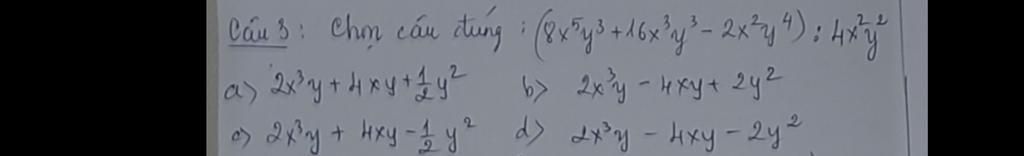 Câu 3: Chọn câu đúng: (8x⁵y³ + 16x³y³ - 2x²y⁴) : 4x²y²
a) 2x³y + 4xy + 1/2 y² b) 2x³y - 4xy + 2y²
c) 2x³y + 4xy - 1/2 y² d) 2x³y - 4xy - 2y²